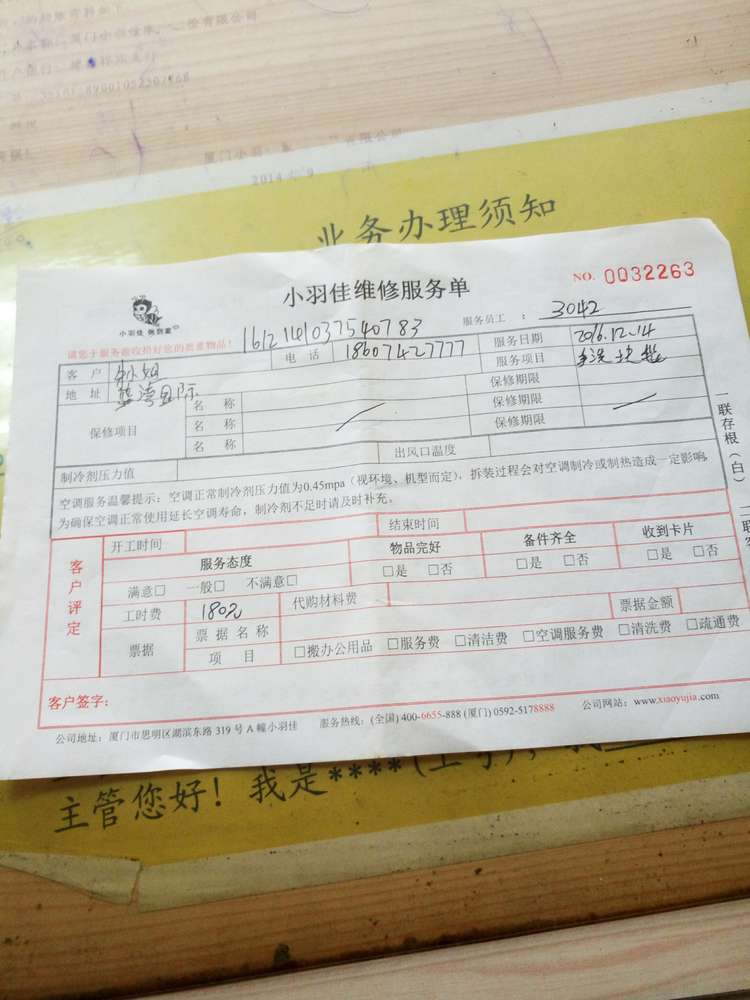 业务办理须知
小羽佳维修服务单
NO. 0032263
小羽佳
请您于服务前收拾好您的贵重物品!
161214103754 0783
服务员工 : 3042
客 户
电 话 18607427777
服务日期 2016.12.14
地 址 蓝湾国际
服务项目
保修项目
名 称
保修期限
名 称
保修期限
名 称
保修期限
制冷剂压力值
出风口温度
空调服务温馨提示:空调正常制冷剂压力值为0.45mpa(视环境、机型而定),拆装过程会对空调制冷或制热造成一定影响,
为确保空调正常使用延长空调寿命,制冷剂不足时请及时补充。
一联存根(白)
客户评定
开工时间
结束时间
服务态度
物品完好
备件齐全
收到卡片
满意□ 一般□ 不满意□
□是 □否
□是 □否
□是 □否
工时费 180元
代购材料费
票据金额
票据
票 据 名 称
项 目
□搬办公用品 □服务费 □清洁费 □空调服务费 □清洗费 □疏通费
客户签字:
公司地址:厦门市思明区湖滨东路 319 号 A 幢小羽佳
服务热线:(全国) 400-6655-888 (厦门) 0592-5178888
公司网站:www.xiaoyujia.com
主管您好!我是****(工号),我